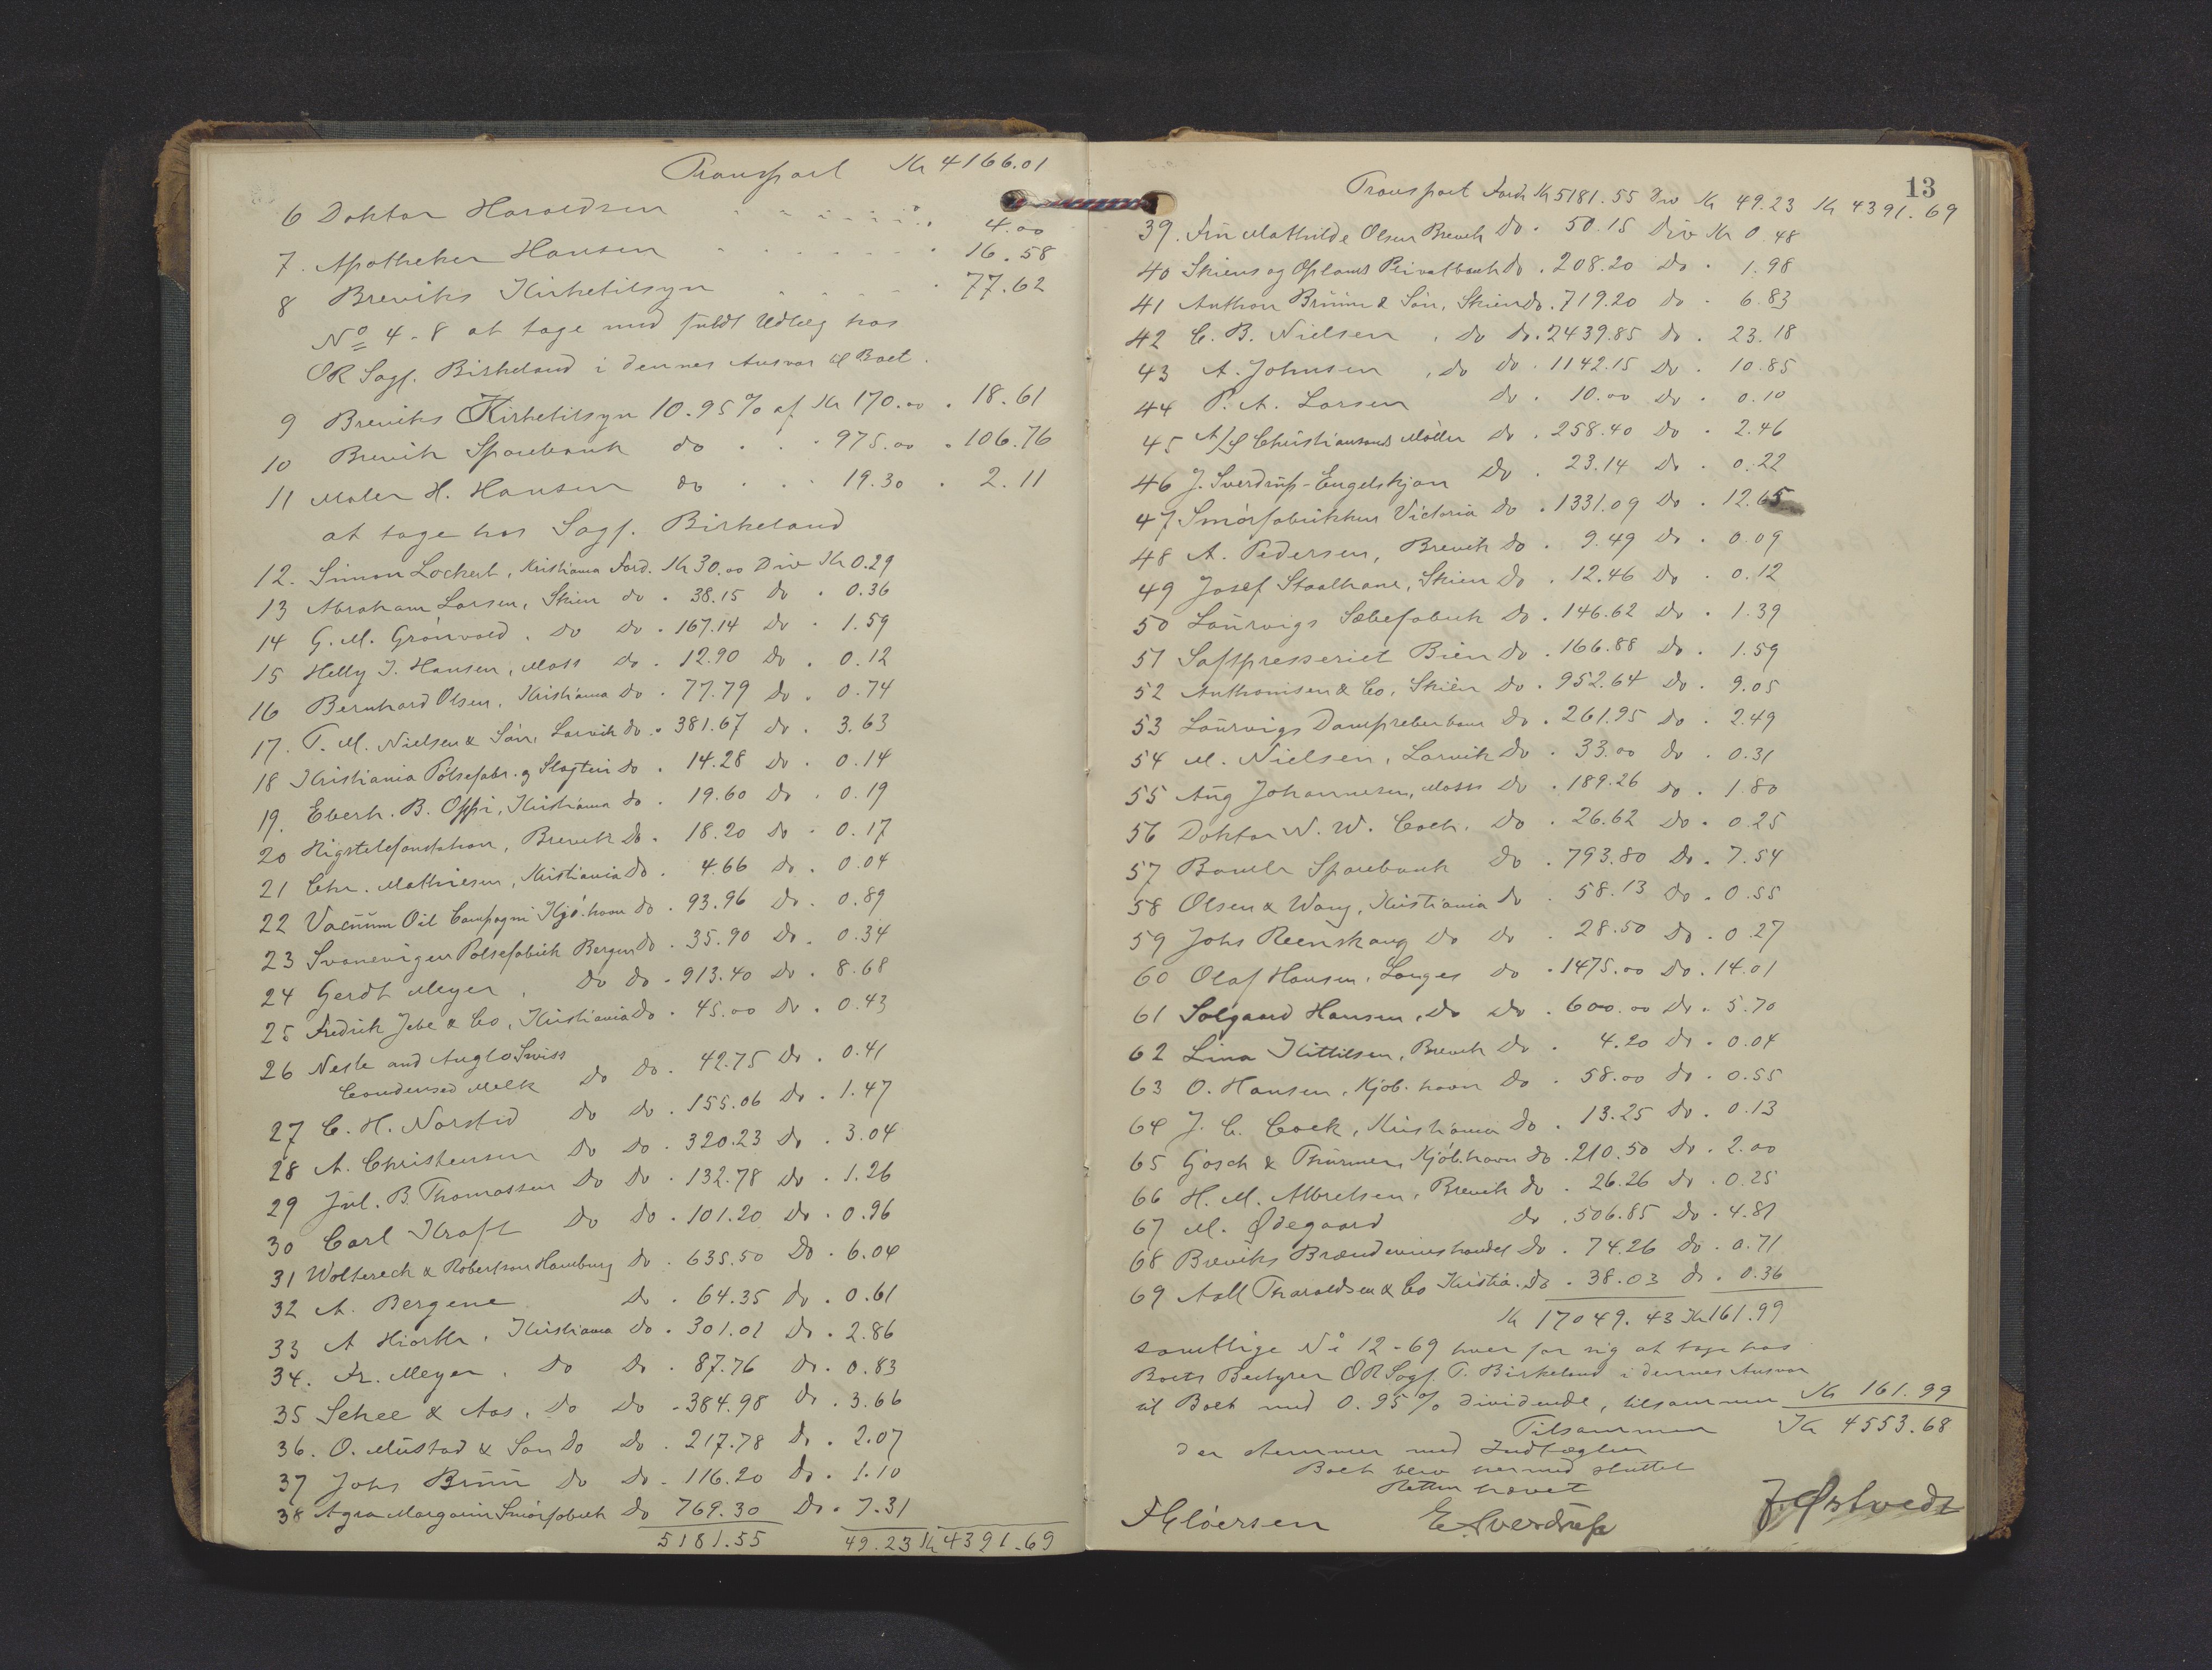 Transport Kr 4166.01
6 Doktor Haraldsen 4.00
7. Apotheker Hansen 16.58
8 Breviks Kirketilsyn 77.62
No 4-8 at tage med fuldt Udlæg hos
OR Sagf. Birkeland i dennes Ansvar til Boet.
9 Breviks Kirketilsyn 10.95% af Kr 170.00 . 18.61
10 Brevik Sparebank do . . 975.00 . 106.76
11 Maler H. Hansen do . . 19.30 . 2.11
at tage hos Sagf. Birkeland
12. Simon Lockert, Kristiania Ford. Kr 30.00 Div Kr 0.29
13 Abraham Larsen, Skien do . 38.15 do . 0.36
14 G. M. Grönvold . do do . 167.14 do . 1.59
15 Helly J. Hansen, Moss do . 12.90 do . 0.12
16 Bernhard Olsen, Kristiania do . 77.79 do . 0.74
17. T. M. Nielsen & Sön, Larvik do . 381.67 do . 3.63
18 Kristiania Pölsefabr. og Slagteri do . 14.28 do . 0.14
19. Eberh. B. Oppi, Kristiania do . 19.60 do . 0.19
20 Rigstelefonstation, Brevik do . 18.20 do . 0.17
21 Chr. Mathiesen, Kristiania do . 4.66 do . 0.04
22 Vacuum Oil Compagni Kjö.havn do . 93.96 do . 0.89
23 Svanevigen Pölsefabrik Bergen do . 35.90 do . 0.34
24 Gerdt Meyer . do do . 913.40 do . 8.68
25 Fredrik Jebe & Co, Kristiania do . 45.00 do . 0.43
26 Nesle and Anglo Swiss
Condensed Melk do do . 42.75 do . 0.41
27 C. H. Norsted do do . 155.06 do . 1.47
28 A. Christensen do do . 320.23 do . 3.04
29 Jul. B. Thomassen do do . 132.78 do . 1.26
30 Carl Kraft do do . 101.20 do . 0.96
31 Woltereck & Robertson Hamburg do . 635.50 do . 6.04
32 A. Bergene do . 64.35 do . 0.61
33 A Hiorth, Kristiania do . 301.01 do . 2.86
34. Fr. Meyer . do do . 87.76 do . 0.83
35 Schee & Aas . do do . 384.98 do . 3.66
36. O. Mustad & Søn do do . 217.78 do . 2.07
37 Johs Bruun do do . 116.20 do . 1.10
38 Agra Margarin Smörfabrik do 769.30 do . 7.31
5181.55 49.23 Kr 4391.69
13
Transport Ford Kr 5181.55 Div Kr 49.23 Kr 4391.69
39. Frū Mathilde Olsen Brevik do . 50.15 Div Kr 0.48
40 Skiens og Oplands Privatbank do . 208.20 do . 1.98
41 Anthon Bruun & Sön, Skien do . 719.20 do . 6.83
42 C. B. Nielsen , do do . 2439.85 do . 23.18
43 A. Johnsen , do do . 1142.15 do . 10.85
44 P. A. Larsen do . 10.00 do . 0.10
45 A/S Christianssands Möller do . 258.40 do . 2.46
46 J. Sverdrup-Engelskjøn do . 23.14 do . 0.22
47 Smörfabrikken Victoria do . 1331.09 do . 12.65
48 A. Pedersen, Brevik do . 9.49 do . 0.09
49 Josef Staalhane, Skien do . 12.46 do . 0.12
50 Laurvigs Sæbefabrik do . 146.62 do . 1.39
51 Saftpresseriet Bien do . 166.88 do . 1.59
52 Anthonisen & Co, Skien do . 952.64 do . 9.05
53 Laurvigs Dampreberbane do . 261.95 do . 2.49
54 M. Nielsen, Larvik do . 33.00 do . 0.31
55 Aug Johannesen, Moss do . 189.26 do . 1.80
56 Doktor N. W. Coch. do . 26.62 do . 0.25
57 Bamle Sparebank do . 793.80 do . 7.54
58 Olsen & Wang, Kristiania do . 58.13 do . 0.55
59 Johs Reenskaug do do . 28.50 do . 0.27
60 Olaf Hansen, Langes do . 1475.00 do . 14.01
61 Solgaard Hansen, do do . 600.00 do . 5.70
62 Lina Kittilsen, Brevik do . 4.20 do . 0.04
63 O. Hansen, Kjöb.havn do . 58.00 do . 0.55
64 J. C. Cock, Kristiania do . 13.25 do . 0.13
65 Gosch & Thurmer, Kjöb.havn do . 210.50 do . 2.00
66 H. M. Albretsen, Brevik do . 26.26 do . 0.25
67 M. Ødegaard do . 506.85 do . 4.81
68 Breviks Brændevinshandel do . 74.26 do . 0.71
69 Aall Tharaldsen & Co Kristia. do . 38.03 do . 0.36
Kr 17049.43 Kr 161.99
samtlige No 12-69 hver for sig at tage hos
Boets Bestyrer OR Sagf. T. Birkeland i dennes Ansvar
til Boet med 0.95% dividende, tilsammen Kr 161.99
Tilsammen Kr 4553.68
der stemmer med Indtægten
Boet blev hermed sluttet
Retten hævet
F Gløersen E Sverdrup J. Østvedt